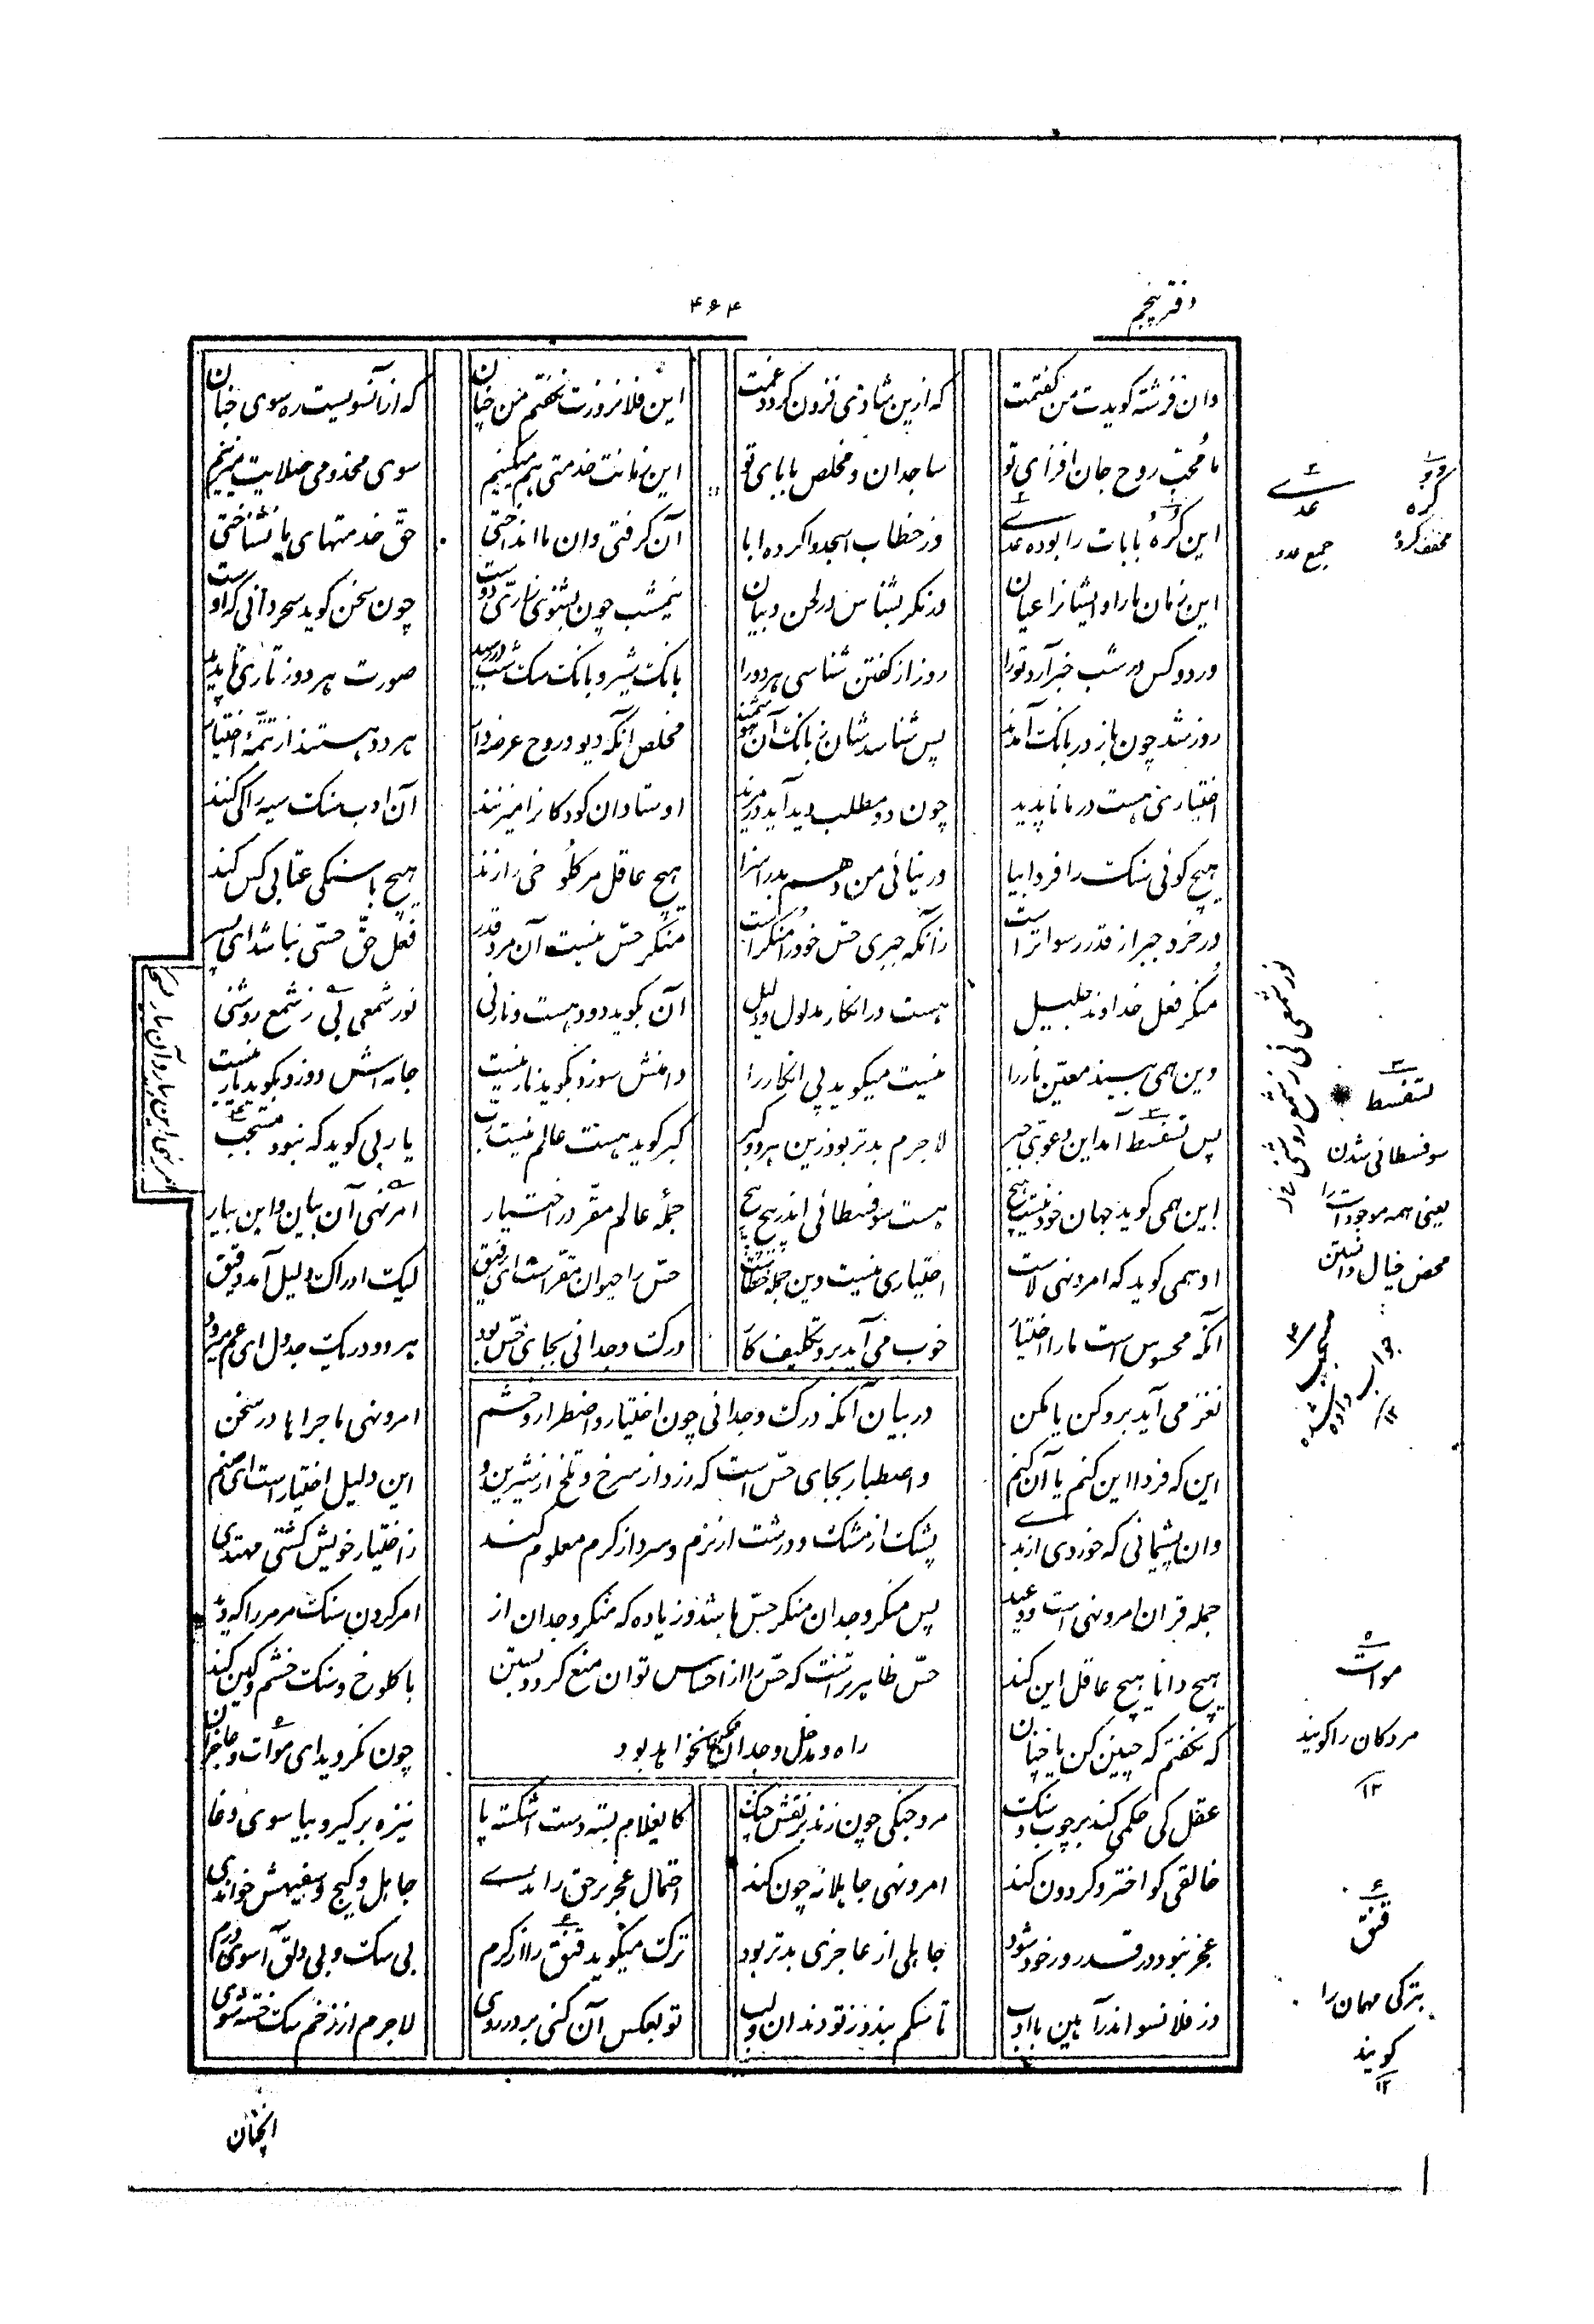 دفتر پنجم
۴۶۴
وان فرشته کویدت من کفتمت که ازین شادی فزون کردد غمت
این فلان روزت نکفتم من چنان که از آنسویست ره سوی جنان
ما محب روح جان افزای تو ساجدان و مخلص بابای تو
این زمانت خدمتی هم میکنیم سوی مخدومی صلایت میزنیم
این کره بابات را بوده عدی وز خطاب اسجدوا کرده ابا
آن کرفتی وان ما انداختی حق خدمتهای ما نشناختی
این زمان ما را و ایشانرا عیان در نکر بشناس در لحن و بیان
نیمشب چون بشنوی رازی ز دوست چون سخن کوید سحر دانی که اوست
ور دو کس در شب خبر آرد تو را روز از کفتن شناسی هر دو را
بانک شیر و بانک سک شب در رسید صورت هر دو ز تاری ناپدید
روز شد چون باز در بانک آمدند پس شناسدشان ز بانک آن هوشمند
مخلص آنکه دیو و روح عرضه دار هر دو هستند از تتمهٔ اختیار
اختیاری هست در ما ناپدید چون دو مطلب دید آید در مزید
اوستادان کودکانرا میزنند آن ادب سنک سیه را کی کنند
هیچ کوئی سنک را فردا بیا ور نیائی من دهم بد را سزا
هیچ عاقل مر کلوخی را زند هیچ با سنکی عتابی کس کند
در خرد جبر از قدر رسواتر است زانکه جبری حس خود را منکر است
منکر حس نیست آن مرد قدر فعل حق حسی نباشد ای پسر
منکر فعل خداوند جلیل هست در انکار مدلول و دلیل
آن بکوید دود هست و نار نی نور شمعی بی ز شمع روشنی
وین همی بیند معین نار را نیست میکوید پی انکار را
دامنش سوزد بکوید نار نیست جامه اش دوزد بکوید تار نیست
پس تسفسط آمد این دعوی جبر لاجرم بدتر بود زین رو ز کبر
کبر کوید هست عالم نیست رب یا ربی کوید که نبود مستجب
این همی کوید جهان خود نیست هیچ هست سوفسطائی اندر پیچ پیچ
جملهٔ عالم مقر در اختیار امر نهی آن بیان و این بیار
او همی کوید که امر و نهی لاست اختیاری نیست وین جمله خطاست
حس را حیوان مقر است ای رفیق لیک ادراک دلیل آمد دقیق
آنکه محسوس است ما را اختیار خوب می آید برو تکلیف کار
درک وجدانی بجای حس بود هر دو در یک جدول ای عم میرود
در بیان آنکه درک وجدانی چون اختیار و اضطرار و خشم
و اصطبار بجای حس است که زرد از سرخ و تلخ از شیرین و
پشک از مشک و درشت از نرم و سرد از کرم معلوم کند
پس منکر وجدان منکر حس باشد و زیاده که منکر وجدان از
حس ظاهر تر است که حس را از احساس توان منع کرد و بستن
راه و مدخل وجدان هیچ نخواهد بود
نغز می آید برو کن یا مکن امر و نهی ماجراها در سخن
این که فردا این کنم یا آن کنم این دلیل اختیار است ای صنم
وان پشیمانی که خوردی از بدی ز اختیار خویش کشتی مهتدی
جمله قران امر و نهی است و وعید امر کردن سنک مرمر را که دید
هیچ دانا هیچ عاقل این کند با کلوخ و سنک خشم و کین کند
که نکفتم که چنین کن یا چنان چون نکردید ای موات و عاجزان
عقل کی حکمی کند بر چوب و سنک مرد جنکی چون زند بر نقش جنک
کای غلام بسته دست اشکسته پا نیزه برکیر و بیا سوی وغا
خالقی کو اختر و کردون کند امر و نهی جاهلانه چون کند
احتمال عجز بر حق راندی جاهل و کیج و سفیهش خواندی
عجز نبود در قدر ور خود بود جاهلی از عاجزی بدتر بود
ترک میکوید قنق را از کرم بی سک و بی دلق آ سوی درم
وز فلانسو اندر آ هین با ادب تا سکم بندد ز تو دندان و لب
تو بعکس آن کنی بر در روی لاجرم از زخم سک خسته شوی
کره
مخفف کروه
عدی
جمع عدو
نور شمعی نی ز شمع روشنی
تسفسط
سوفسطائی شدن
یعنی همه موجودات را
محض خیال دانستن
مستجب
جواب داده شده
۱۲
موات
مردکان را کویند
۱۲
قنق
بترکی مهمان را
کویند
۱۲
امر نهی این بیار و آن میار
انچنان